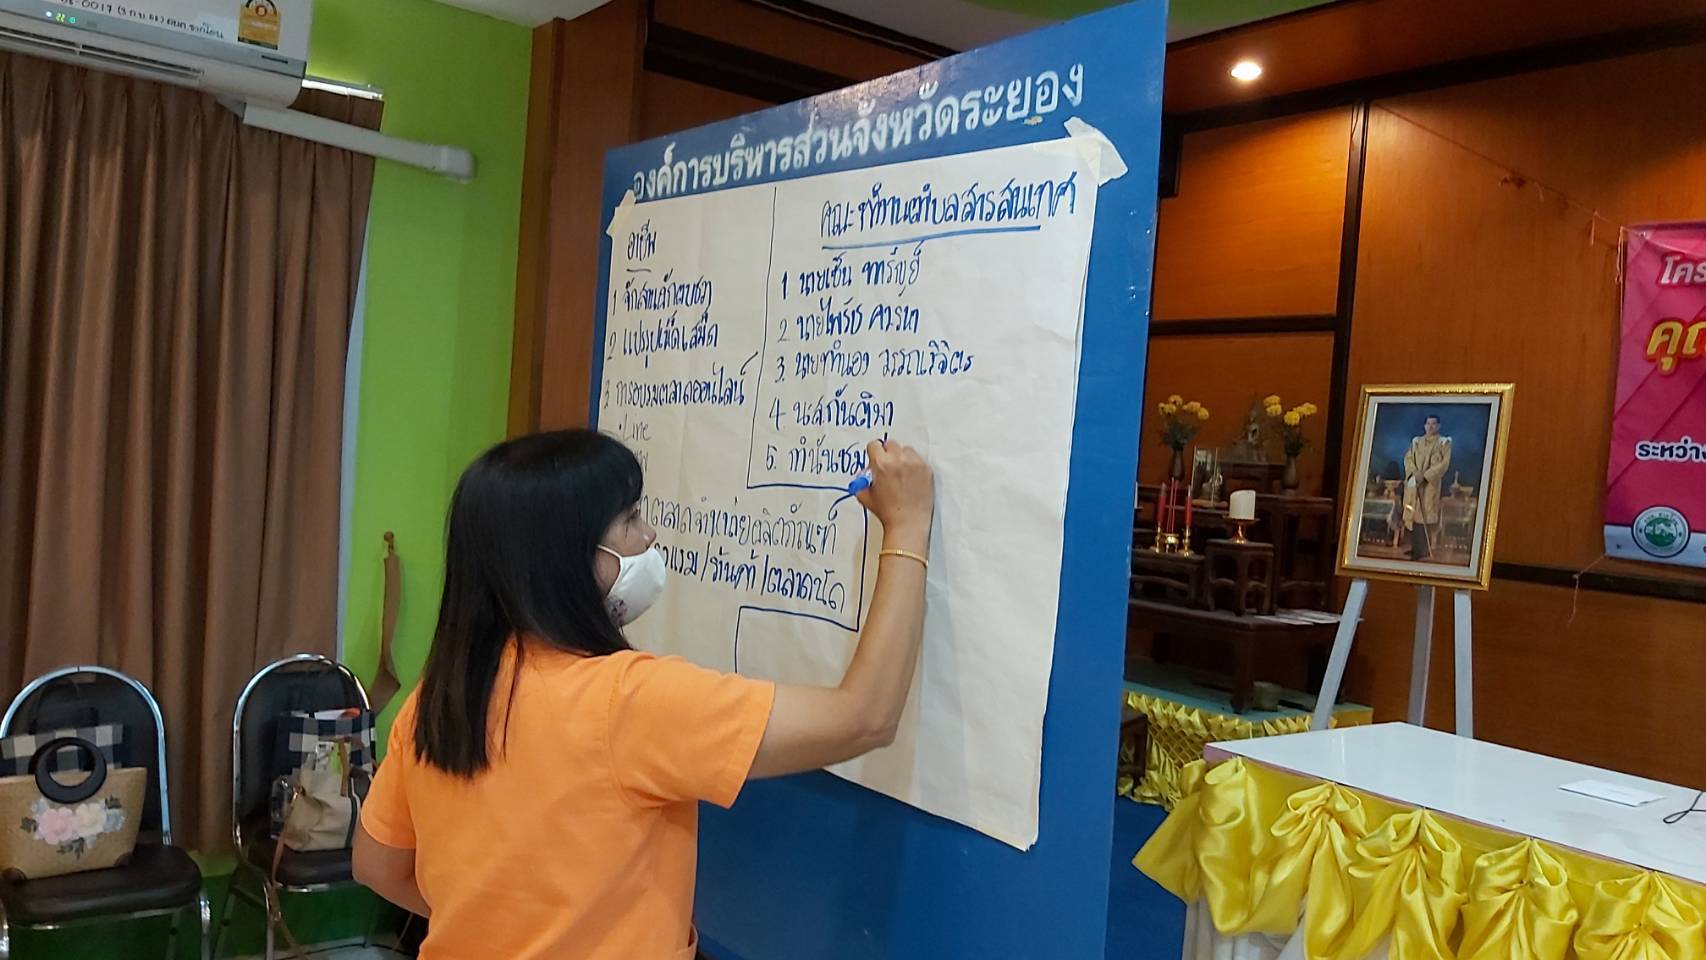 องค์การบริหารส่วนจังหวัดระยอง
อาชีพ
1 จักสานผักตบชวา
2 แปรรูปเห็ดเสม็ด
3 การอบรมตลาดออนไลน์
• Line
ตลาดจำหน่ายผลิตภัณฑ์
แรม/ร้านค้า/ตลาดนัด
คณะทำงานตำบลสารสนเทศ
1 นายเซ็น
2. นายไพรัช
3. นายทำนอง วรรณวิจิตร
4. น.ส.กันติมา
5. กำนันชม
โคร
คุณ
ระหว่าง